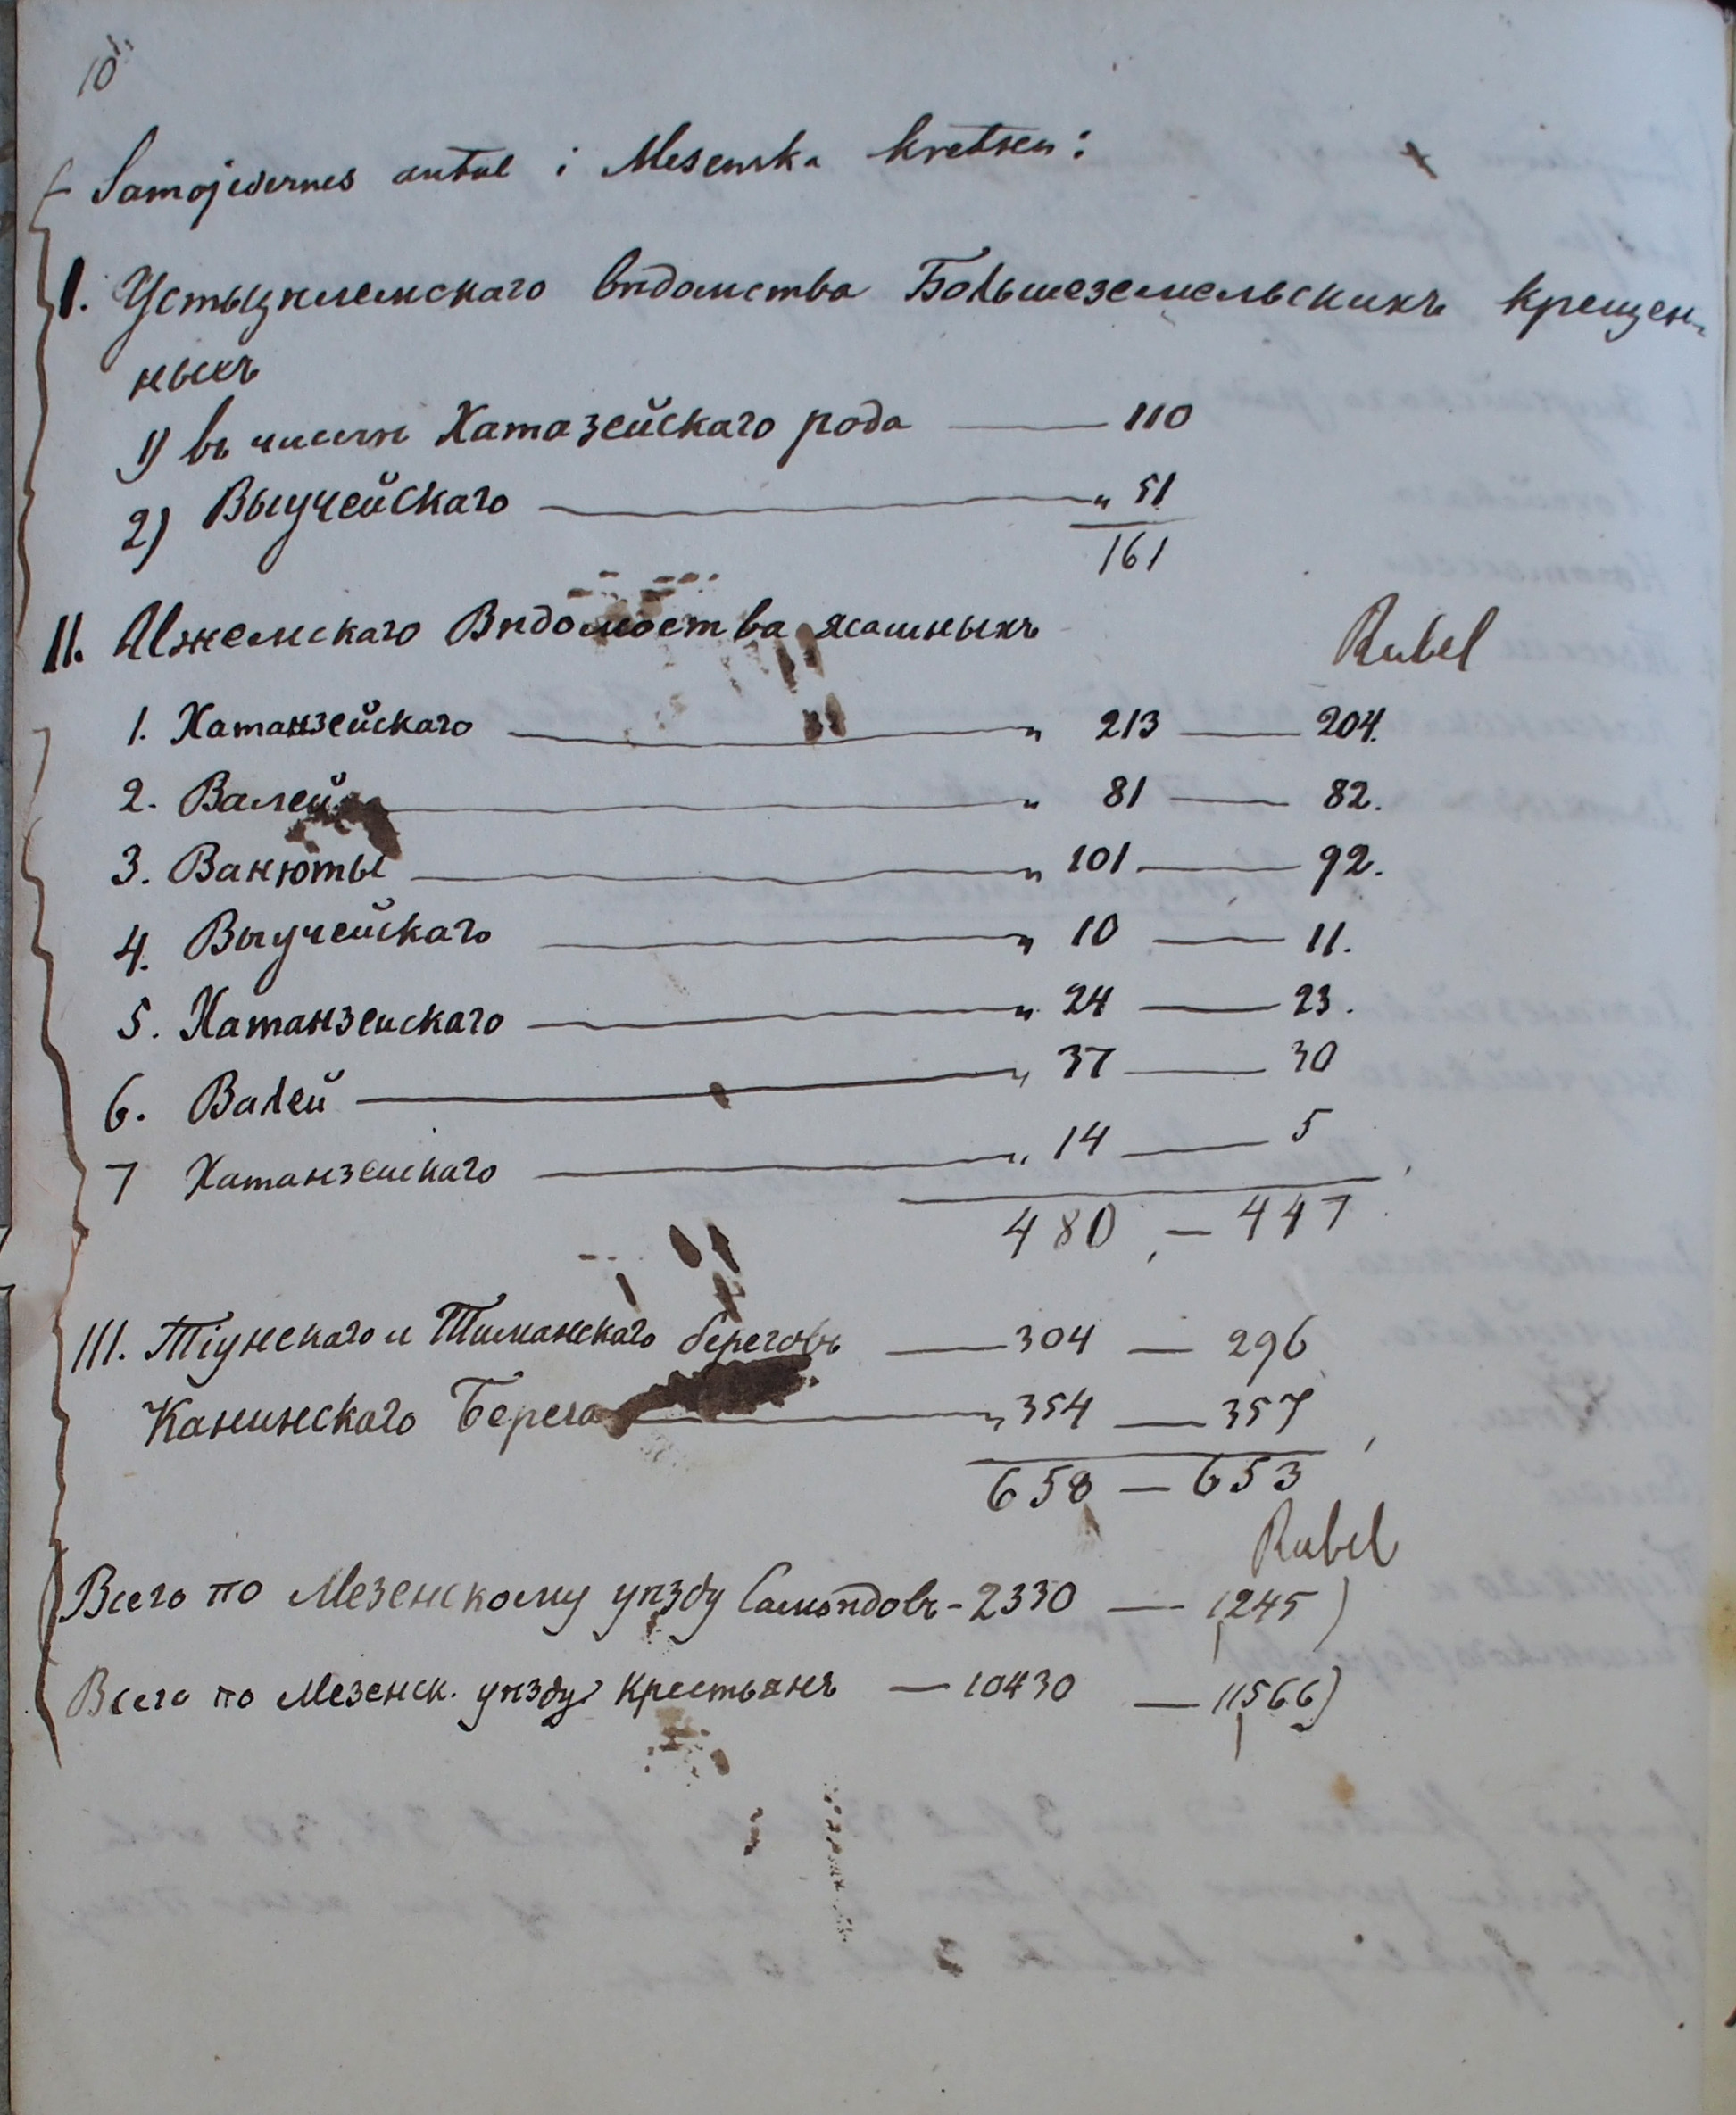 10
Samojedernes antal i Mesenska kretsen:
I. Устьцылемскаго вѣдомства Большеземельскихъ крещен-
ныхъ
1) въ числѣ Хатазейскаго рода — 110
2) Выучейскаго — „ 51
161
II. Ижемскаго Вѣдомоства ясашныхъ
Rubel
1. Хатанзейскаго — „ 213 — 204.
2. Валей — „ 81 — 82.
3. Ванюты — „ 101 — 92.
4. Выучейскаго — „ 10 — 11.
5. Хатанзейскаго — „ 24 — 23.
6. Валей — „ 37 — 30
7 Хатанзейскаго — „ 14 — 5
480 — 447
III. Тіунскаго и Тиманскаго береговъ — 304 — 296
Канинскаго Берега — „ 354 — 357
658 — 653
Rubel
Всего по Мезенскому уѣзду Самоѣдовъ - 2330 — 1245)
Всего по Мезенск. уѣзду Крестьянъ — 10430 — 11566)